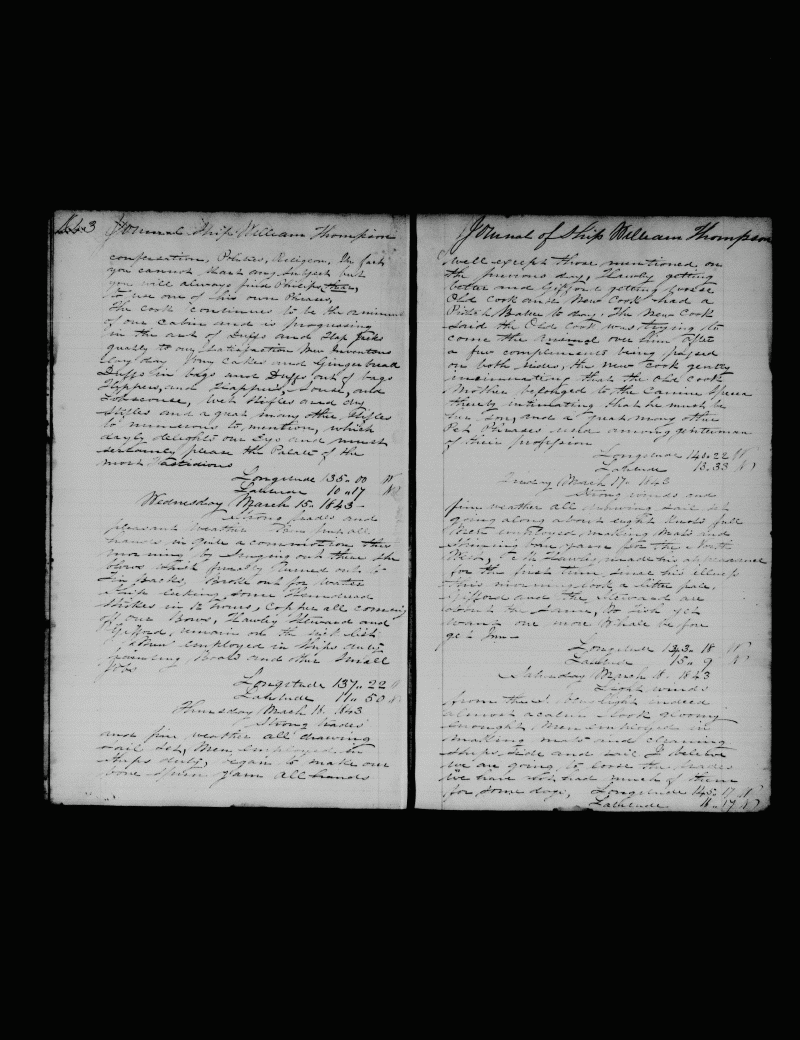 1843 Journal Ship William Thompson
conversation, Politics, Religeon, In fact
you cannot start any Subject but
you will always find Philips there,
to use one of his own Phrases,
The Cook continues to be the
of our Cabin and is progressing
in the art of Duffs and Flap Jacks
quite to our Satisfaction New Inventions
day day Jony Cakes and Gingerbread
Duffs in bags and Duffs out of bags
Flippers, and Flappers, Souse, and
Lobscouse, Wet Stifles and dry
Stifles and a great many other Stifles
to numerous to mention, which
dayly delights our Eys and must
certainly please the Palate of the
most Fastidious
Longitude 135.00 W
Latitude 10.17 N
Wednesday March 15. 1843
Strong trades and
pleasant weather put all
hands in Quite a commotion this
morning by Singing out there she
blows which finally turned out to
Fin Backs, Broke out for Water
Ship leaking some
Strokes in 12 hours, Copper all coming
off our Bows, Hawley Steward and
Gifford, remain on the sick list
Men employed in Ships duty
Boats and other Small
Jobs
Longitude 137.22 W
Latitude 11.50 N
Thursday March 16. 1843
Strong trades
and fine weather all drawing
sail set, Men employed in
Ships duty, began to make our
Spun yarn all hands
Journal of Ship William Thompson
well except those mentioned on
the previous day, Hawley getting
better and Gifford getting worse
Old Cook and New Cook had a
Battle to day. The New Cook
said the Old Cook was trying to
come the over him after
a few complements being passed
on both sides, the new Cook gently
insinuating that the old Cook
Mother belonged to the Canine Specie
thereby intimating that he must be
her Son, and a great many other
Pet Phrases used among gentleman
of their profession
Longitude 140.22 W
Latitude 13.33 N
Friday March 17. 1843
Strong winds and
fine weather all drawing sail set
going along about eight knots full
Men employed making Mats and
yarn for the North
West, Hawley made his appearance
for the first time, since his illness
this morning look a litter pale,
Gifford and the Steward are
about the Same, No fish yet
want one more Whale before
get Jun
Longitude 143.18 W
Latitude 15.9 N
Saturday March 18. 1843
Light winds
from the very light indeed
almost a calm look gloomy
enought. Men employed in
making mats and cleaning
ships Side and sail I believe
we are going to loose the trades
we have not had much of them
for some days, Longitude 145.17 W
Latitude 17 N